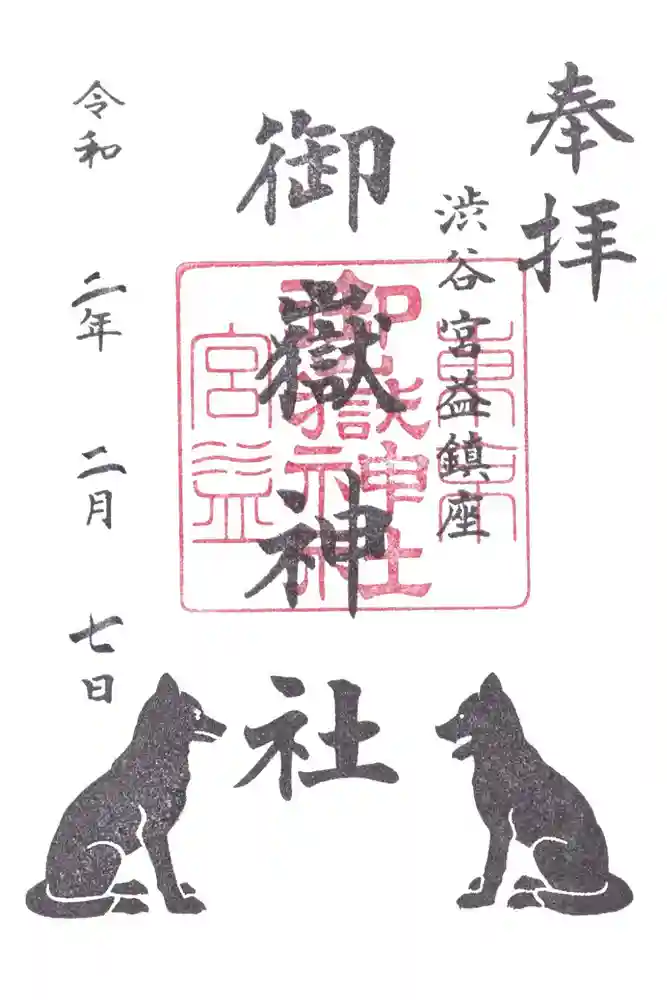 奉拝
渋谷宮益鎮座
御嶽神社
令和二年二月七日
東京
御嶽神社
宮益